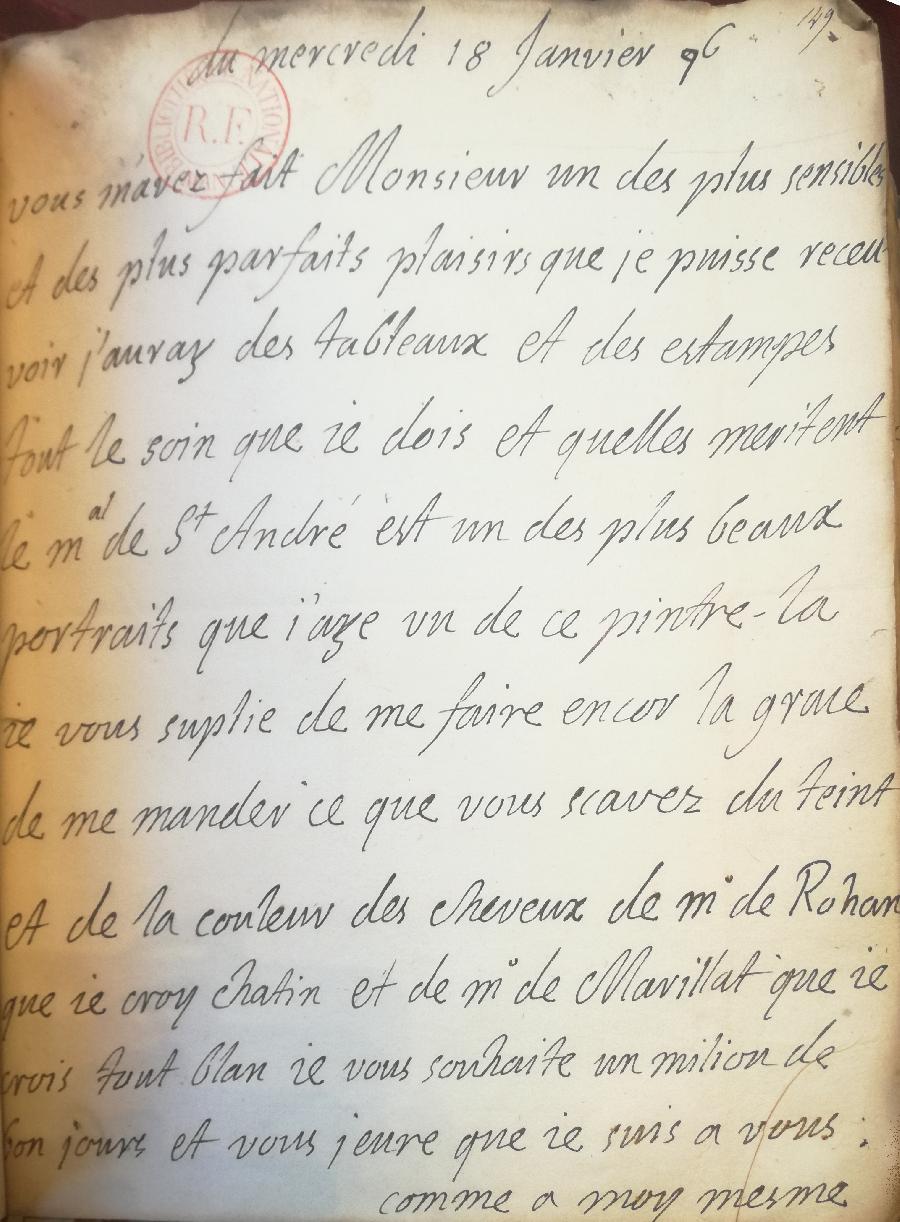 149
du mercredi 18 Janvier 96
BIBLIOTHEQUE NATIONALE
R.F.
vous m'avez fait Monsieur un des plus sensibles
et des plus parfaits plaisirs que je puisse receu-
voir j'auray des tableaux et des estampes
tout le soin que ie dois et quelles meritent
le mal de St André est un des plus beaux
portraits que i'aye vu de ce pintre-la
ie vous suplie de me faire encor la grace
de me mander ce que vous scavez du teint
et de la couleur des cheveux de mr de Rohan
que ie croy chatin et de mr de Marillat que ie
crois tout blan ie vous souhaite un milion de
bon jours et vous jeure que ie suis a vous :
comme a moy mesme